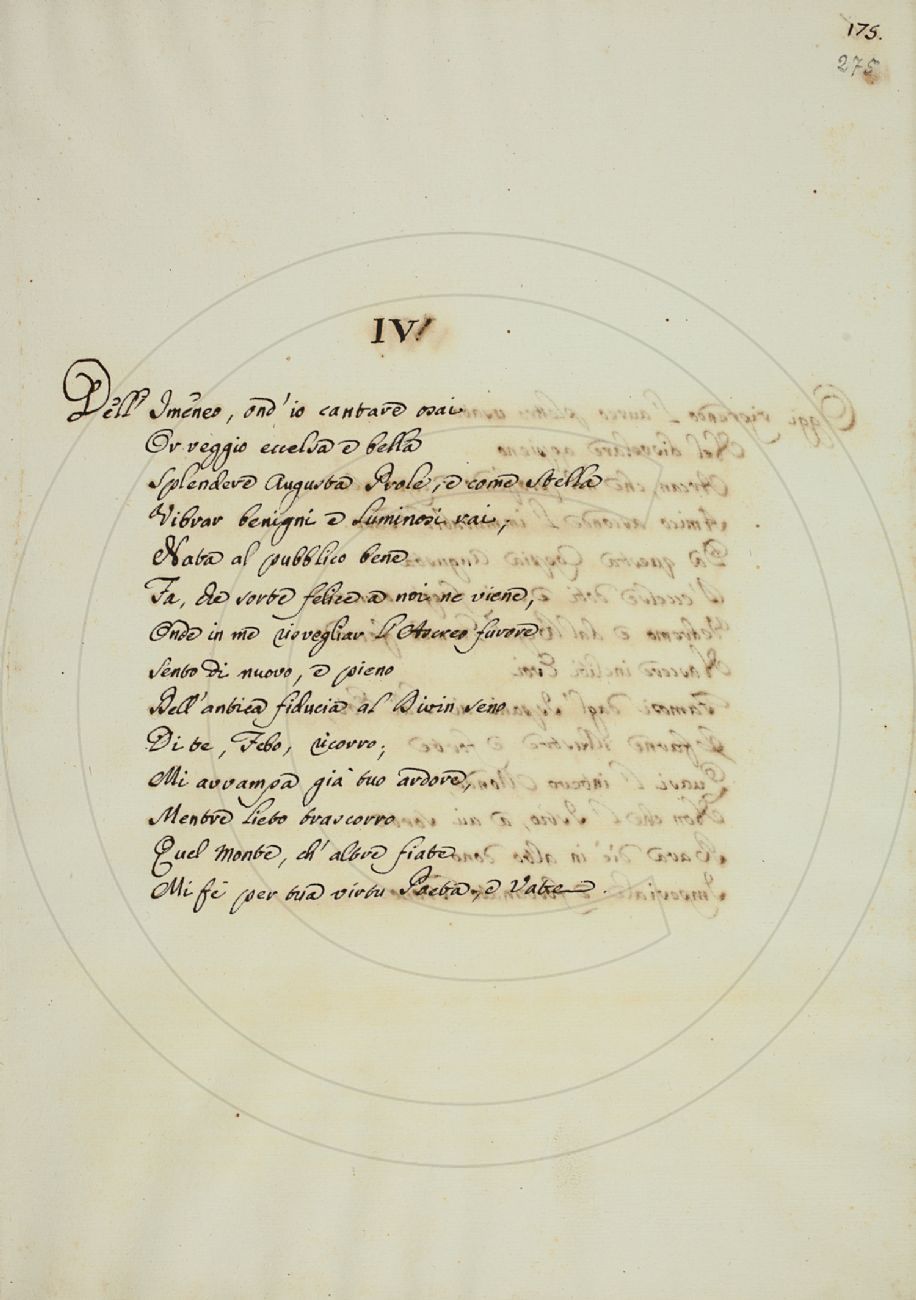 175.
275
IV.
Dell' Imeneo, ond' io cantare osai
Or veggio eccelsa e bella
Splendere Augusta Prole, e come stella
Vibrar benigni e luminosi rai,
Nata al pubblico bene
Fa, che sorte felice a noi ne viene,
Onde in me risvegliar l'Ascreo furore
Sento di nuovo, e pieno
Dell' antica fiducia al Divin seno
Di te, Febo, ricorro;
Mi avvampa già tuo ardore,
Mentre lieto trascorro
Quel Monte, ch' altre fiate
Mi fè per tua virtu Poeta, e Vate.